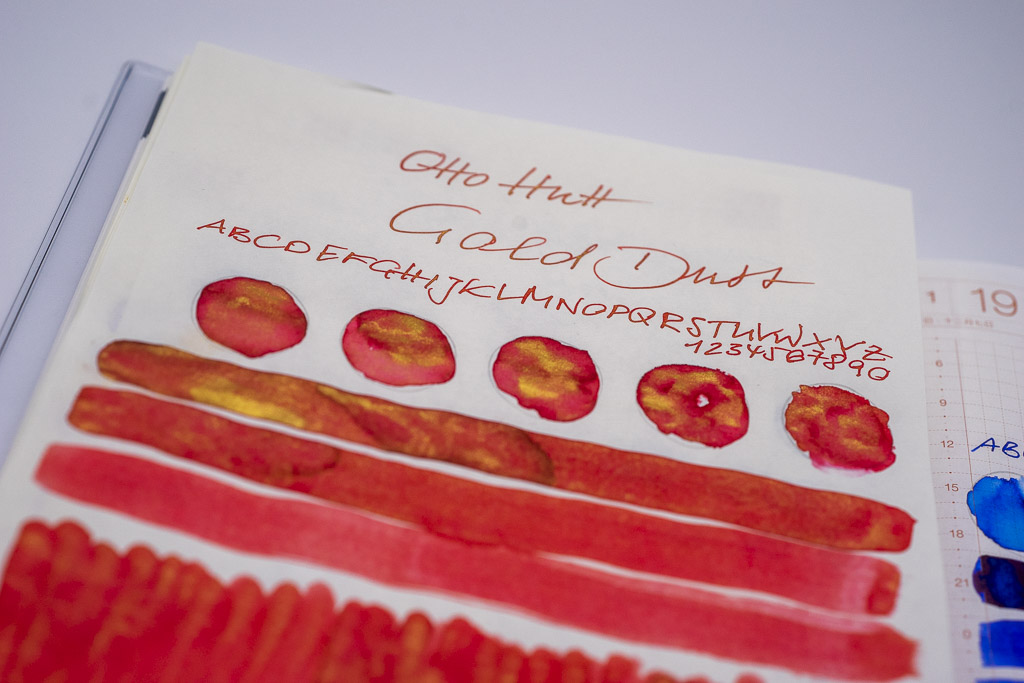 Otto Hutt
Gold Dust
ABCDEFGHIJKLMNOPQRSTUVWXYZ
1234567890
1 19
6
9
12
15
18
21
AB